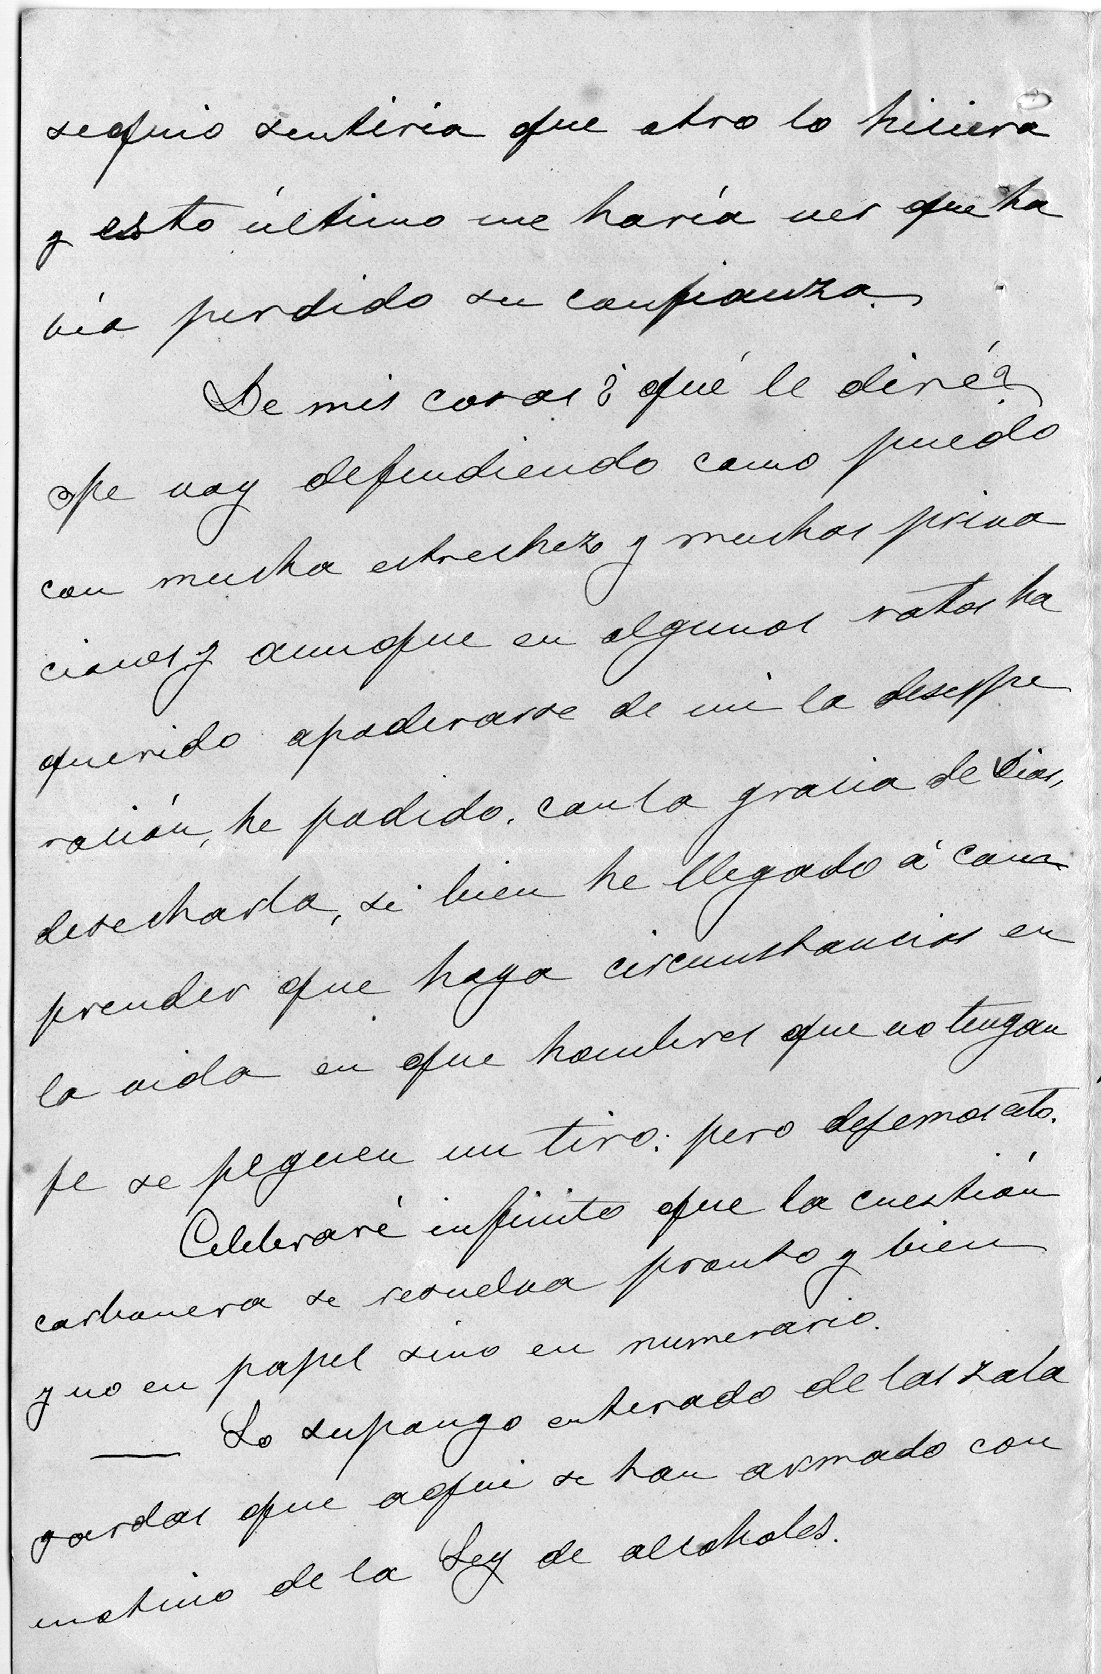 sequio sentiria que otro lo hiciera
y esto último me haría ver que ha
bía perdido su confianza.
De mis cosas ¿qué le diré?
pe voy defendiendo como puedo
con mucha estrechez y muchas priva
ciones y aunque en algunos ratos ha
querido apoderarse de mi la desespe
ración, he podido, con la gracia de Dios,
desecharla, si bien he llegado á com
prender que haya circunstancias en
la vida en que hombres que no tengan
fe se peguen un tiro: pero dejemos esto.
Celebraré infinito que la cuestión
carbonera se resuelva pronto y bien
y no en papel sino en numerario.
— Lo supongo enterado de las zala
gardas que aqui se han armado con
motivo de la Ley de alcoholes.